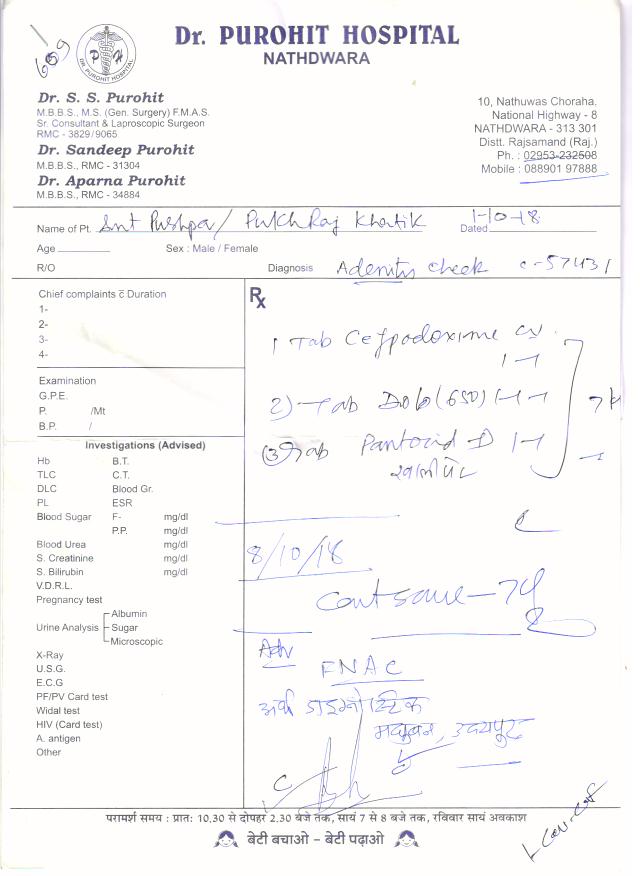 659
Dr. PUROHIT HOSPITAL
NATHDWARA
DR. PUROHIT HOSPITAL
P H
Dr. S. S. Purohit
M.B.B.S., M.S. (Gen. Surgery) F.M.A.S.
Sr. Consultant & Laproscopic Surgeon
RMC - 3829/9065
Dr. Sandeep Purohit
M.B.B.S., RMC - 31304
Dr. Aparna Purohit
M.B.B.S., RMC - 34884
10, Nathuwas Choraha,
National Highway - 8
NATHDWARA - 313 301
Distt. Rajsamand (Raj.)
Ph. : 02953-232508
Mobile : 088901 97888
Name of Pt. Smt Pushpa / PukhRaj Khatik Dated 1-10-18
Age Sex : Male / Female
R/O Diagnosis Adenitis cheek
Chief complaints c̄ Duration
1-
2-
3-
4-
Examination
G.P.E.
P. /Mt
B.P. /
Rx
1 Tab Cefpodoxime cv
1-1
2) Tab Dolo (650) 1-1-1
3) Tab Pantocid D 1-1
खाली पेट
Investigations (Advised)
Hb B.T.
TLC C.T.
DLC Blood Gr.
PL ESR
Blood Sugar F- mg/dl
P.P. mg/dl
Blood Urea mg/dl
S. Creatinine mg/dl
S. Bilirubin mg/dl
V.D.R.L.
Pregnancy test
Urine Analysis Albumin
Sugar
Microscopic
X-Ray
U.S.G.
E.C.G
PF/PV Card test
Widal test
HIV (Card test)
A. antigen
Other
8/10/18
Cont same
Adv
FNAC
अर्थ डाइग्नोस्टिक
मधुबन, उदयपुर
परामर्श समय : प्रातः 10.30 से दोपहर 2.30 बजे तक, सायं 7 से 8 बजे तक, रविवार सायं अवकाश
बेटी बचाओ - बेटी पढ़ाओ